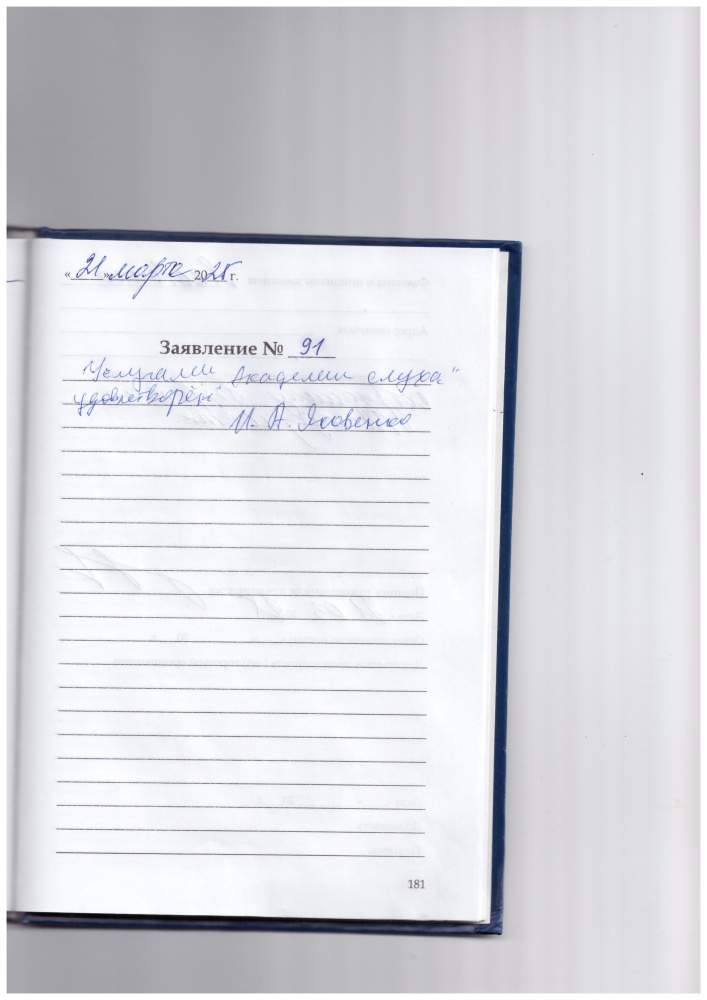 « 21 » марта 2025 г.
Заявление № 91
Услугами Академии слуха"
удовлетворён
И. А. Яковенко
181